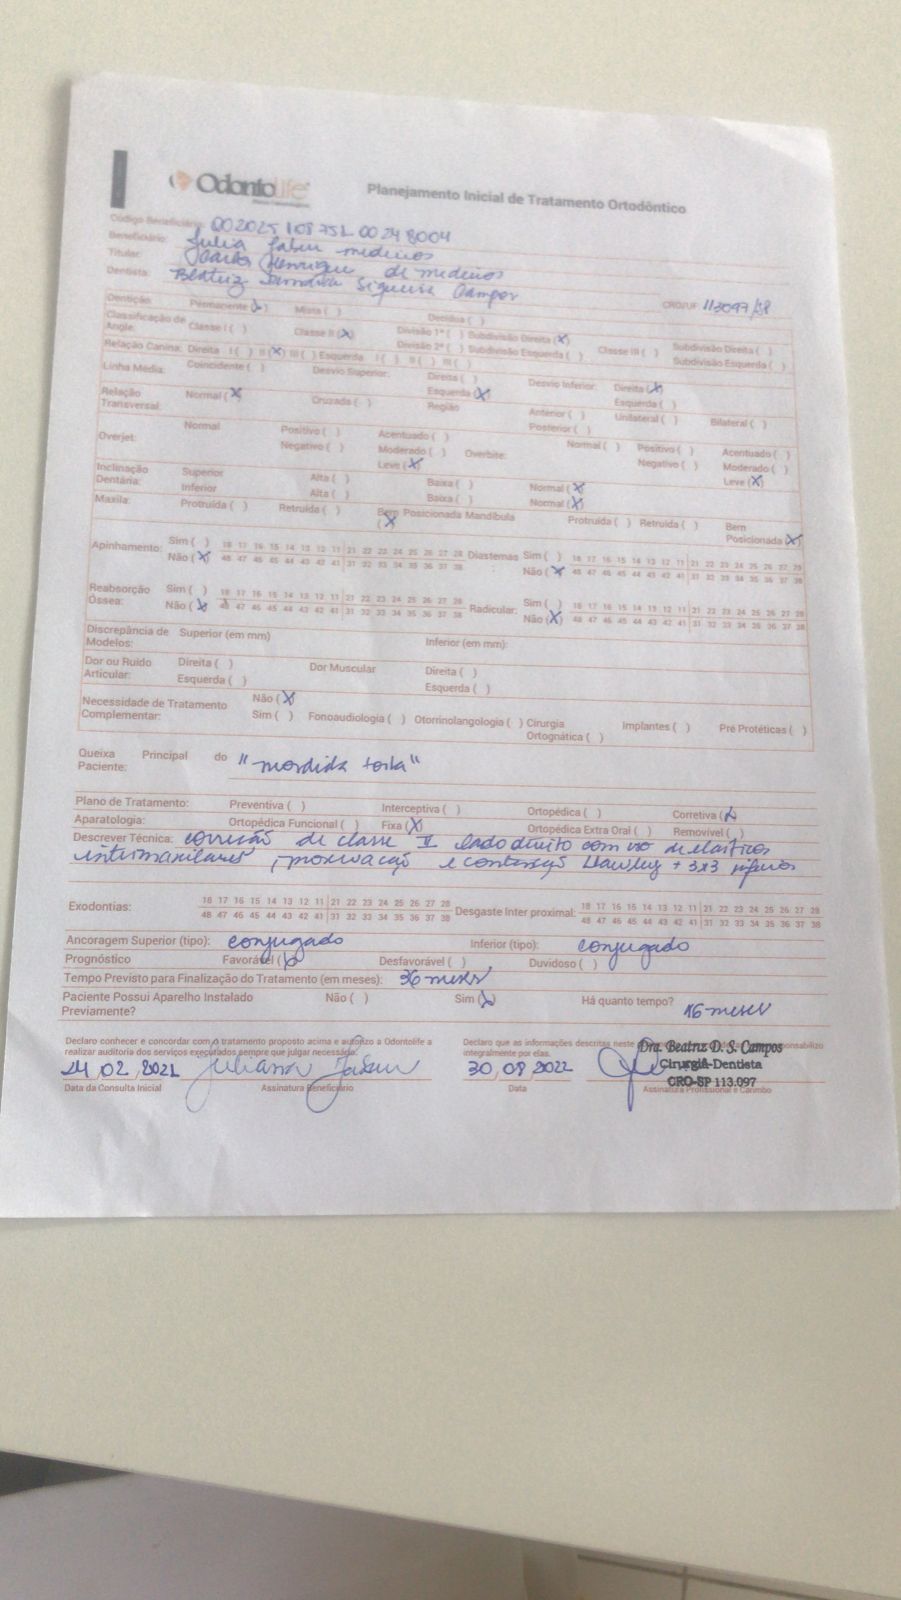 Odontolife
Planejamento Inicial de Tratamento Ortodôntico
Código Beneficiário:
Beneficiário: Julia
Titular: Henrique de medeiros
Dentista: Beatriz Siqueira Campos CRO/UF: 113097/SP
Dentição: Permanente (X) Mista ( ) Decídua ( )
Classificação de Angle: Classe I ( ) Classe II (X) Divisão 1ª ( ) Subdivisão Direita (X) Classe III ( ) Subdivisão Direita ( )
Divisão 2ª ( ) Subdivisão Esquerda ( ) Subdivisão Esquerda ( )
Relação Canina: Direita I ( ) II (X) III ( ) Esquerda I ( ) II ( ) III ( )
Linha Média: Coincidente ( ) Desvio Superior: Direita ( ) Desvio Inferior: Direita (X)
Esquerda (X) Esquerda ( )
Relação Transversal: Normal (X) Cruzada ( ) Região Anterior ( ) Unilateral ( ) Bilateral ( )
Posterior ( )
Overjet: Normal Positivo ( ) Acentuado ( ) Overbite: Normal ( ) Positivo ( ) Acentuado ( )
Negativo ( ) Moderado ( ) Negativo ( ) Moderado ( )
Leve (X) Leve (X)
Inclinação Dentária: Superior Alta ( ) Baixa ( ) Normal (X)
Inferior Alta ( ) Baixa ( ) Normal (X)
Maxila: Protruída ( ) Retruída ( ) Bem Posicionada (X) Mandíbula Protruída ( ) Retruída ( ) Bem Posicionada (X)
Apinhamento: Sim ( ) 18 17 16 15 14 13 12 11 21 22 23 24 25 26 27 28 Diastemas Sim ( ) 18 17 16 15 14 13 12 11 21 22 23 24 25 26 27 28
Não (X) 48 47 46 45 44 43 42 41 31 32 33 34 35 36 37 38 Não (X) 48 47 46 45 44 43 42 41 31 32 33 34 35 36 37 38
Reabsorção Óssea: Sim ( ) 18 17 16 15 14 13 12 11 21 22 23 24 25 26 27 28 Radicular: Sim ( ) 18 17 16 15 14 13 12 11 21 22 23 24 25 26 27 28
Não (X) 48 47 46 45 44 43 42 41 31 32 33 34 35 36 37 38 Não (X) 48 47 46 45 44 43 42 41 31 32 33 34 35 36 37 38
Discrepância de Modelos: Superior (em mm) Inferior (em mm):
Dor ou Ruído Articular: Direita ( ) Dor Muscular Direita ( )
Esquerda ( ) Esquerda ( )
Necessidade de Tratamento Complementar: Não (X)
Sim ( ) Fonoaudiologia ( ) Otorrinolangologia ( ) Cirurgia Ortognática ( ) Implantes ( ) Pre Protéticas ( )
Queixa Principal do Paciente: "mordida torta"
Plano de Tratamento: Preventiva ( ) Interceptiva ( ) Ortopédica ( ) Corretiva (X)
Aparatologia: Ortopédica Funcional ( ) Fixa (X) Ortopédica Extra Oral ( ) Removível ( )
Descrever Técnica: correção de classe II lado direito com uso de elásticos
intermaxilares, e contenção Hawley + 3x3 inferior
Exodontias: 18 17 16 15 14 13 12 11 21 22 23 24 25 26 27 28 Desgaste Inter proximal: 18 17 16 15 14 13 12 11 21 22 23 24 25 26 27 28
48 47 46 45 44 43 42 41 31 32 33 34 35 36 37 38 48 47 46 45 44 43 42 41 31 32 33 34 35 36 37 38
Ancoragem Superior (tipo): conjugado Inferior (tipo): conjugado
Prognóstico Favorável (X) Desfavorável ( ) Duvidoso ( )
Tempo Previsto para Finalização do Tratamento (em meses): 36 meses
Paciente Possui Aparelho Instalado Previamente? Não ( ) Sim (X) Há quanto tempo? 16 meses
Declaro conhecer e concordar com o tratamento proposto acima e autorizo a Odontolife a Declaro que as informações descritas neste
realizar auditoria dos serviços executados sempre que julgar necessário. integralmente por elas.
02 2021 Juliana 30 08 2022 Dra. Beatriz D. S. Campos
Cirurgiã-Dentista
CRO-SP 113.097
Data da Consulta Inicial Assinatura Beneficiário Data Assinatura Profissional e Carimbo